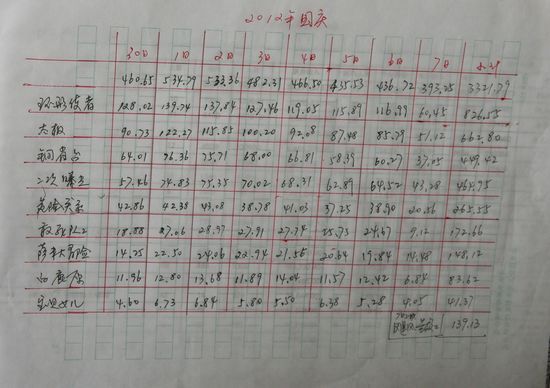 2012年国庆
30日 1日 2日 3日 4日 5日 6日 7日
460.65 534.79 533.36 482.31 466.50 435.53 436.72 393.25 3321.79
环形使者 128.02 139.74 137.84 127.46 119.05 115.89 116.99 60.45 826.55
太极 90.73 122.27 115.85 100.20 92.08 87.48 85.79 51.12 662.80
铜雀台 64.01 76.36 75.71 68.00 66.81 58.39 60.27 37.05 449.42
二次曝光 57.46 74.83 75.35 70.02 68.31 62.89 64.52 43.28 464.75
危险关系 42.86 42.38 43.08 38.78 41.03 37.25 38.90 20.56 265.55
敢死队2 18.88 27.06 28.97 27.91 27.74 25.73 24.67 9.12 172.66
萨米大冒险 14.25 22.50 24.06 22.94 21.56 20.64 19.84 14.48 148.12
白鹿原 11.96 12.80 13.68 11.89 14.04 11.57 12.42 6.84 83.62
宝贝女儿 4.60 6.73 6.84 5.80 5.50 6.38 5.28 4.05 41.37
139.13